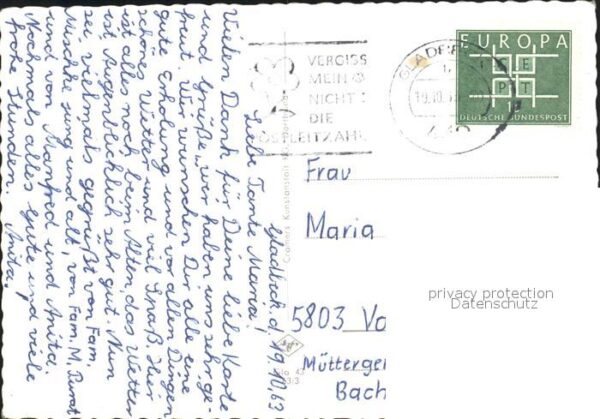 Gladbeck, d. 19.10.63
Liebe Tante Maria!
Vielen Dank für Deine liebe Karte
und Grüße, wir haben uns sehr ge-
freut. Wir wünschen Dir alle eine
gute Erholung und vor allen Dingen
schönes Wetter und viel Spaß. Hier
ist alles noch beim Alten, das Wetter
ist Augenblicklich sehr gut. Nun
sei vielmals gegrüßt von Fam.
Nischke jung und alt, von Fam. M.
und von Manfred und Anita.
Nochmals alles Gute und viele
frohe Stunden. Anita.
VERGISS
MEIN
NICHT
DIE
POSTLEITZAHL
GLADBECK
19.10.63
EUROPA
CEPT
15
DEUTSCHE BUNDESPOST
Cramers Kunstanstalt KG, Dortmund
Frau
Maria
5803 Vo
Mütterge
Bach
privacy protection
Datenschutz